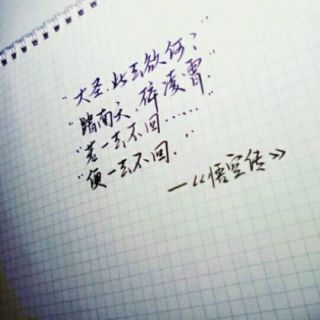 "大圣,此去欲何?"
"踏南天,碎凌霄."
"若一去不回……"
"便一去不回."
—《悟空传》